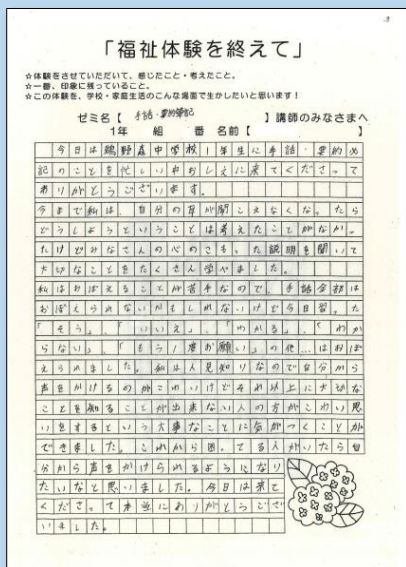 3
「福祉体験を終えて」
☆体験をさせていただいて、感じたこと・考えたこと。
☆一番、印象に残っていること。
☆この体験を、学校・家庭生活のこんな場面で生かしたいと思います!
ゼミ名【 手話・要約筆記 】講師のみなさまへ
1年 組 番 名前【 】
今日は鶴野森中学校1年生に手話・要約必
記のことを忙しい中おしえに来てくださって
ありがとうございます。
今まで私は、自分の耳が聞こえなくなったら
どうしようということは考えたことがなか。
たけどみなさんの心のこもった説明を聞いて
大切なことをたくさん学べました。
私はおぼえることが苦手なので、手話全部は
おぼえられないかもしれないけど今日習った
「そう」、「いいえ」、「わかる」、「わか
らない」、「もう1度お願い」の使 はおぼ
えられました。私は人見知りなので自分から
声をかけるのがこわいけどそれ以上に大切な
ことを知ることが出来ない人の方がこわい思
いをするという大事なことに気がつくことが
できました。これから困ってる人がいたら自
分から声をかけられるようになり
たいなと思いました。今日は来て
くださって本当にありがとうござ
いました。